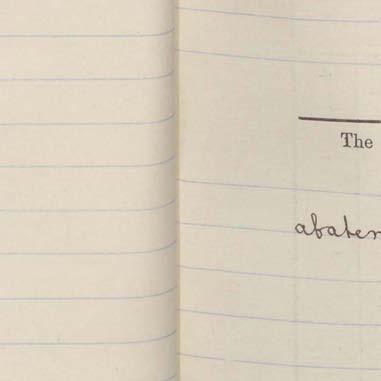 The
abatem